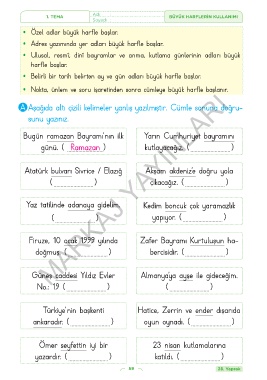 1. TEMA
Adı:
Soyadı:
BÜYÜK HARFLERİN KULLANIMI
• Özel adlar büyük harfle başlar.
• Adres yazımında yer adları büyük harfle başlar.
• Ulusal, resmî, dinî bayramlar ve anma, kutlama günlerinin adları büyük
harfle başlar.
• Belirli bir tarih belirten ay ve gün adları büyük harfle başlar.
• Nokta, ünlem ve soru işaretinden sonra cümleye büyük harfle başlanır.
A Aşağıda altı çizili kelimeler yanlış yazılmıştır. Cümle sonuna doğru-
sunu yazınız.
Bugün ramazan Bayramı'nın ilk
günü. ( Ramazan )
Yarın Cumhuriyet bayramını
kutlayacağız. ( )
Atatürk bulvarı Sivrice / Elazığ
( )
Akşam akdeniz'e doğru yola
çıkacağız. ( )
Yaz tatilinde adanaya gidelim.
( )
Kedim boncuk çok yaramazlık
yapıyor. ( )
Firuze, 10 ocak 1999 yılında
doğmuş. ( )
Zafer Bayramı Kurtuluşun ha-
bercisidir. ( )
Güneş caddesi Yıldız Evler
No.: 19 ( )
Almanya'ya ayşe ile gideceğim.
( )
Türkiye'nin başkenti
ankaradır. ( )
Hatice, Zerrin ve ender dışarıda
oyun oynadı. ( )
Ömer seyfettin iyi bir
yazardır. ( )
23 nisan kutlamalarına
katıldı. ( )
MARKAJ YAYINLARI